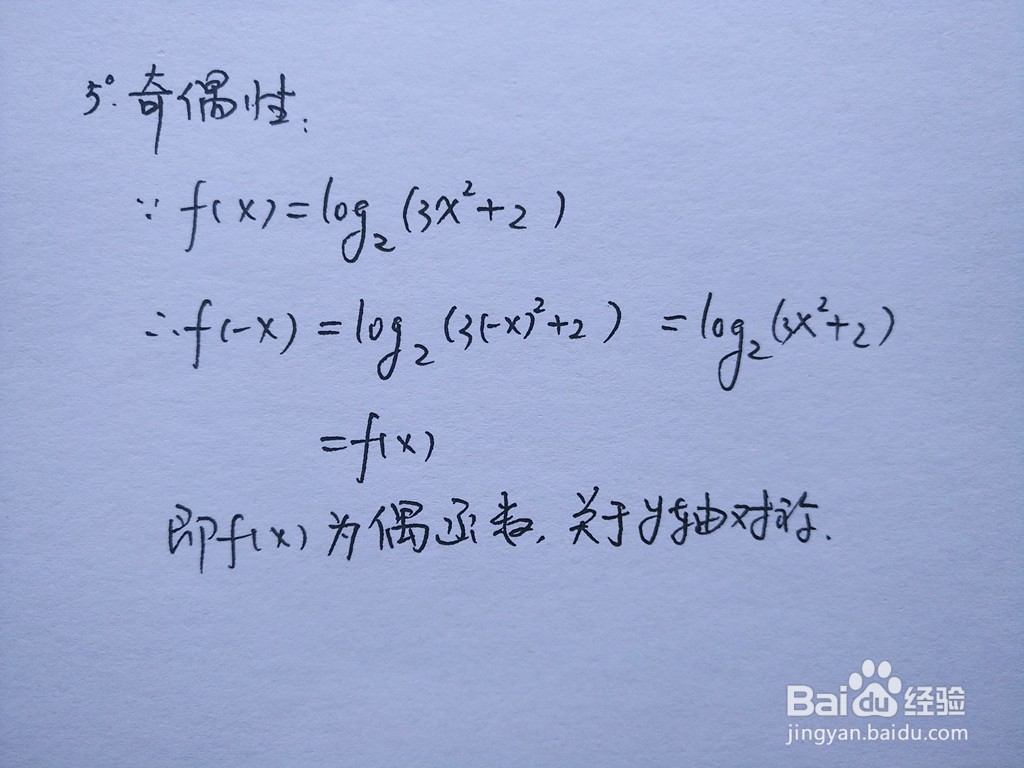 5°. 奇偶性:
∵ f(x)=log₂(3x²+2)
∴f(-x)=log₂(3(-x)²+2) =log₂(3x²+2)
=f(x)
即f(x)为偶函数,关于y轴对称.
Bai du 经验
jingyan.baidu.com